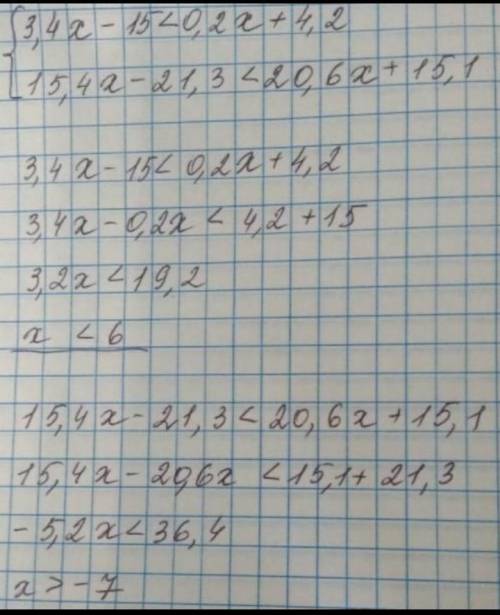 {3,4x - 15 < 0,2x + 4,2
15,4x - 21,3 < 20,6x + 15,1
3,4x - 15 < 0,2x + 4,2
3,4x - 0,2x < 4,2 + 15
3,2x < 19,2
x < 6
15,4x - 21,3 < 20,6x + 15,1
15,4x - 20,6x < 15,1 + 21,3
- 5,2x < 36,4
x > - 7